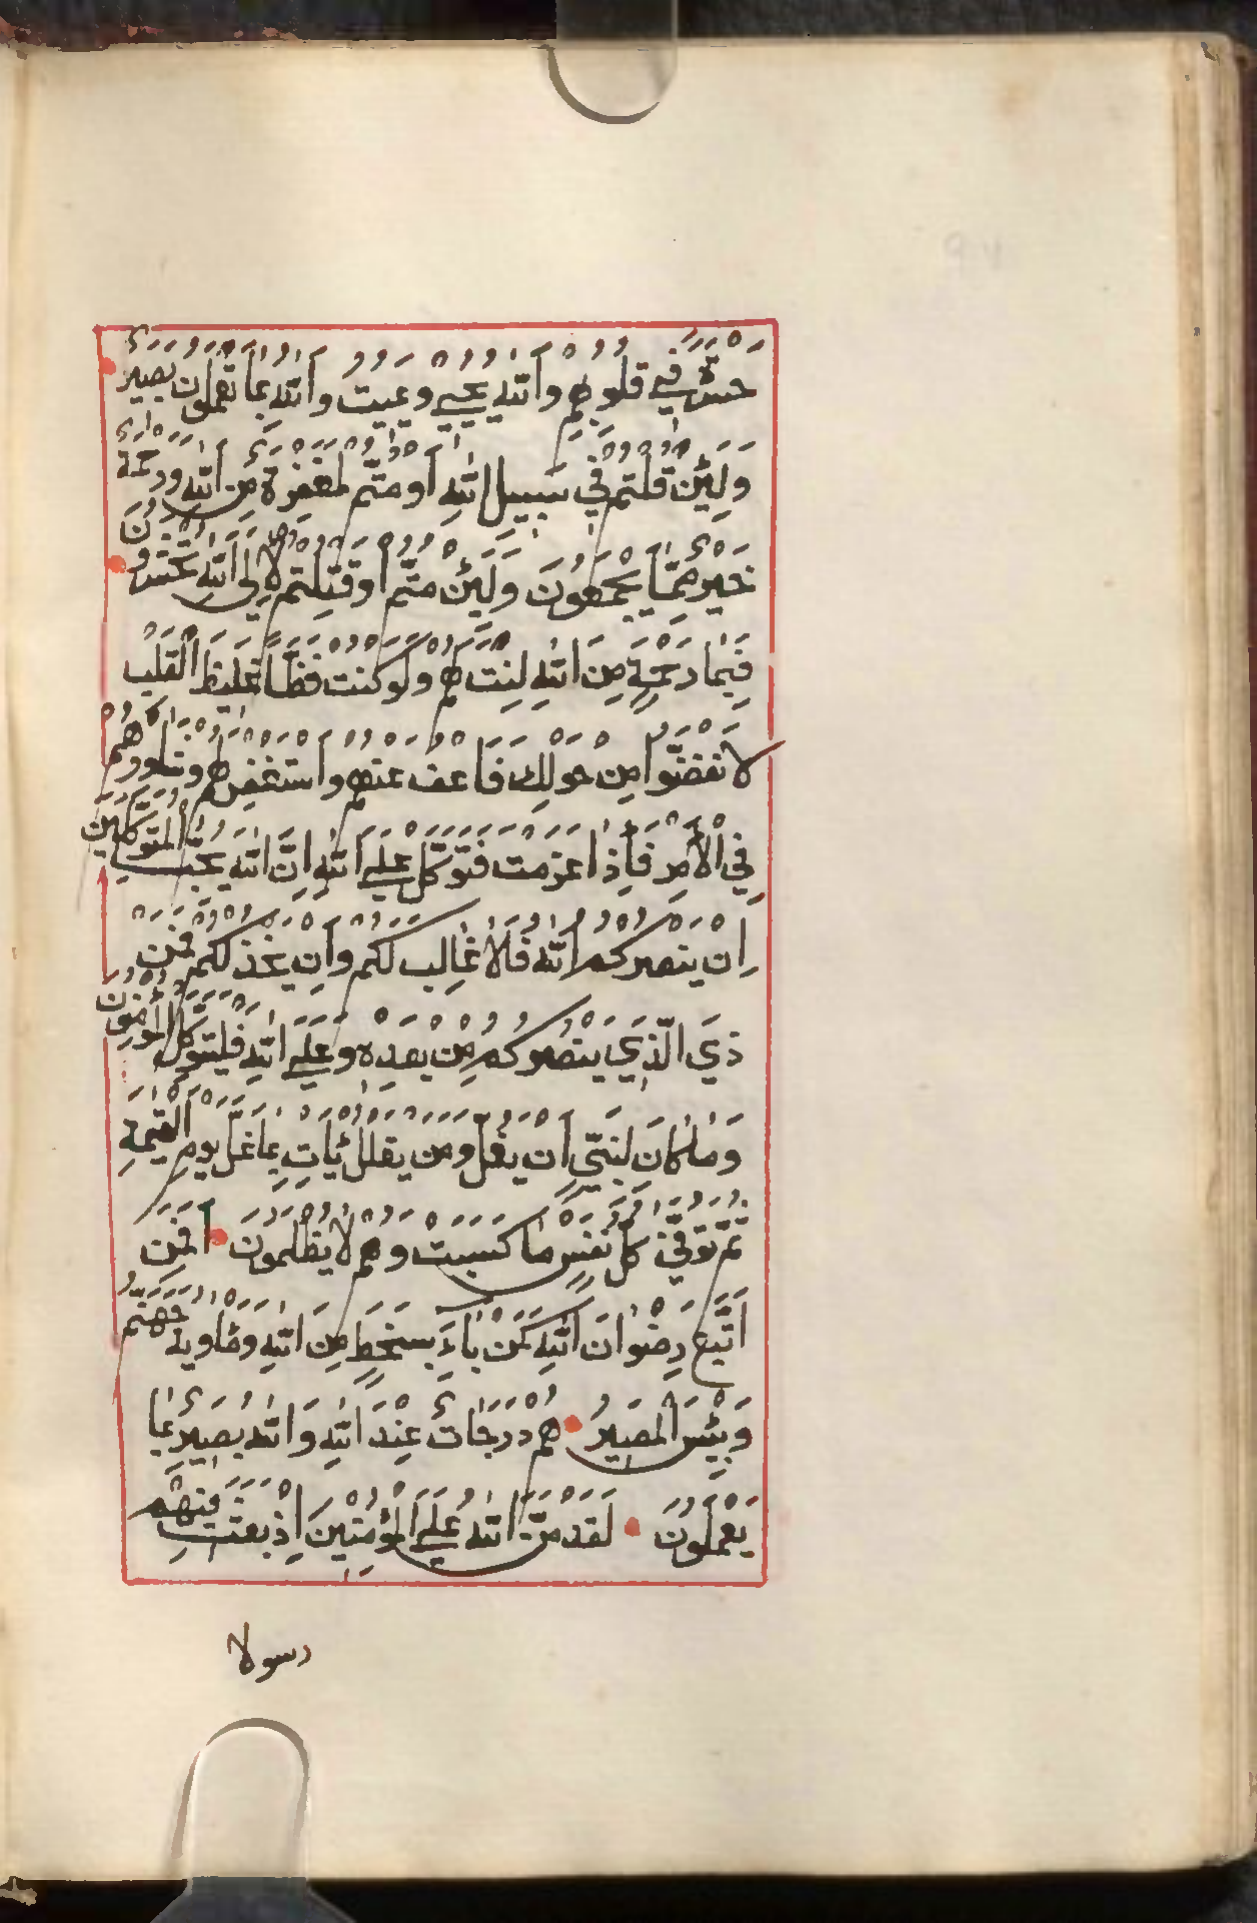 حسرة في قلوبهم والله يحيي ويميت والله بما تعملون بصير
ولئن قتلتم في سبيل الله او متم لمغفرة من الله ورحمة
خير مما يجمعون ولئن متم او قتلتم لالى الله تحشرون
فبما رحمة من الله لنت لهم ولو كنت فظا غليظ القلب
لانفضوا من حولك فاعف عنهم واستغفر لهم وشاورهم
في الامر فاذا عزمت فتوكل على الله ان الله يحب المتوكلين
ان ينصركم الله فلا غالب لكم وان يخذلكم فمن
ذي الذي ينصركم من بعده وعلى الله فليتوكل المؤمنون
وما كان لنبي ان يغل ومن يغلل يات بما غل يوم القيمة
ثم توفى كل نفس ما كسبت وهم لا يظلمون افمن
اتبع رضوان الله كمن باء بسخط من الله وماويه جهنم
وبئس المصير هم درجات عند الله والله بصير بما
يعملون لقد من الله على المؤمنين اذ بعث فيهم
رسولا